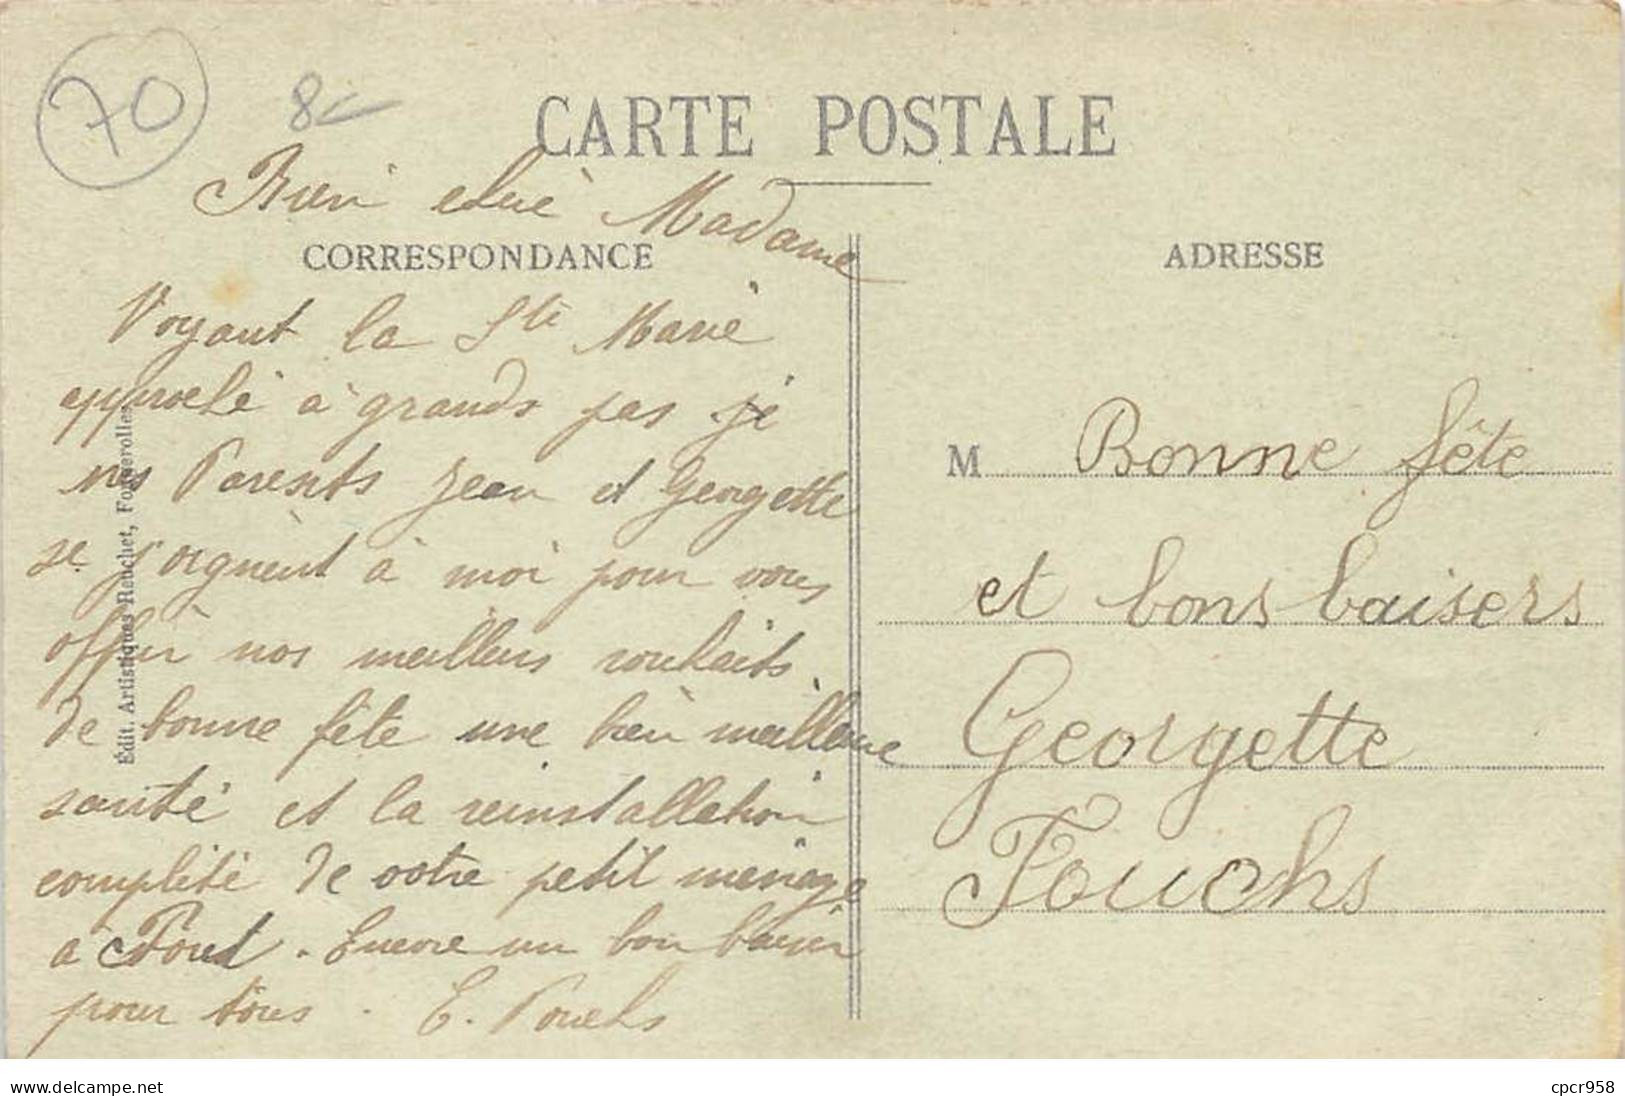 70
8
CARTE POSTALE
Bien chère Madame
CORRESPONDANCE
Voyant la Ste Marie
approché à grands pas je
mes Parents Jean et Georgette
se joignent à moi pour vous
offrir nos meilleurs souhaits
de bonne fête une bien meilleure
santé et la reinstallation
complète de votre petit ménage
à . Encore un bon baiser
pour tous . E. Fouchs
Édit. Artistiques Reuchet, Fougerolles
ADRESSE
M Bonne fête
et bons baisers
Georgette
Fouchs
www.delcampe.net
cpcr958